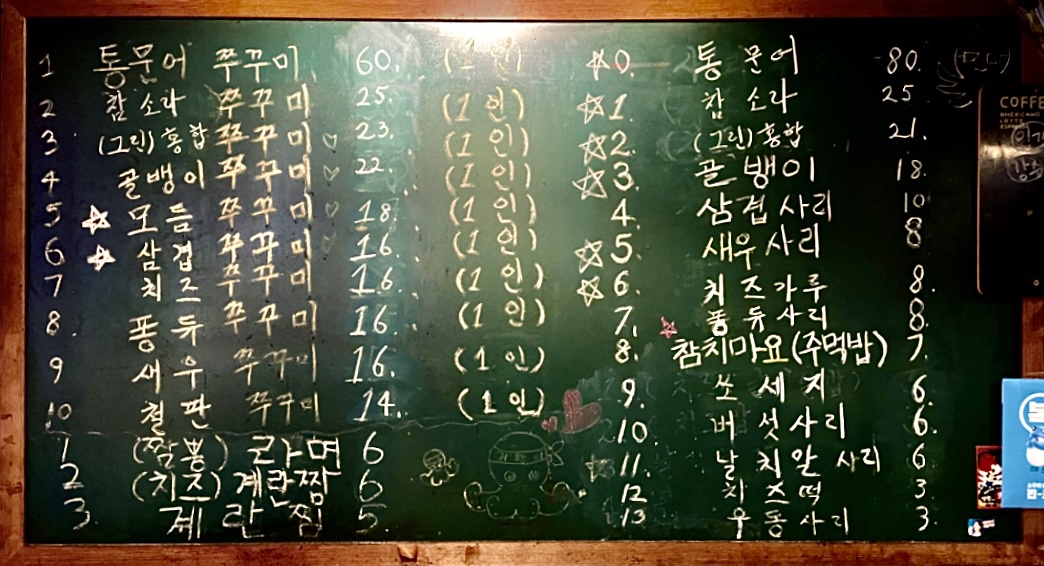 1 통문어 쭈꾸미 60. (1인)
2 참소라 쭈꾸미 25. (1인)
3 (그린)홍합 쭈꾸미 ♡ 23. (1인)
4 골뱅이 쭈꾸미 ♡ 22. (1인)
5 ☆ 모듬 쭈꾸미 ♡ 18. (1인)
6 ☆ 삼겹 쭈꾸미 16. (1인)
7 치즈 쭈꾸미 16. (1인)
8. 퐁듀 쭈꾸미 16. (1인)
9 새우 쭈꾸미 16. (1인)
10 철판 쭈꾸미 14. (1인)
1 (짬뽕) 라면 6
2 (치즈) 계란찜 6
3. 계란찜 5
☆0. 통문어 80.
☆1. 참소라 25
☆2. (그린)홍합 21.
☆3. 골뱅이 18.
4. 삼겹사리 10
☆5 새우사리 8
☆6. 치즈가루 8.
7. ☆ 퐁듀사리 8.
8. 참치마요(주먹밥) 7.
9. 쏘세지 6.
10. 버섯사리 6.
☆11. 날치알 사리 6
12 치즈떡 3.
13 우동사리 3.
COFFEE